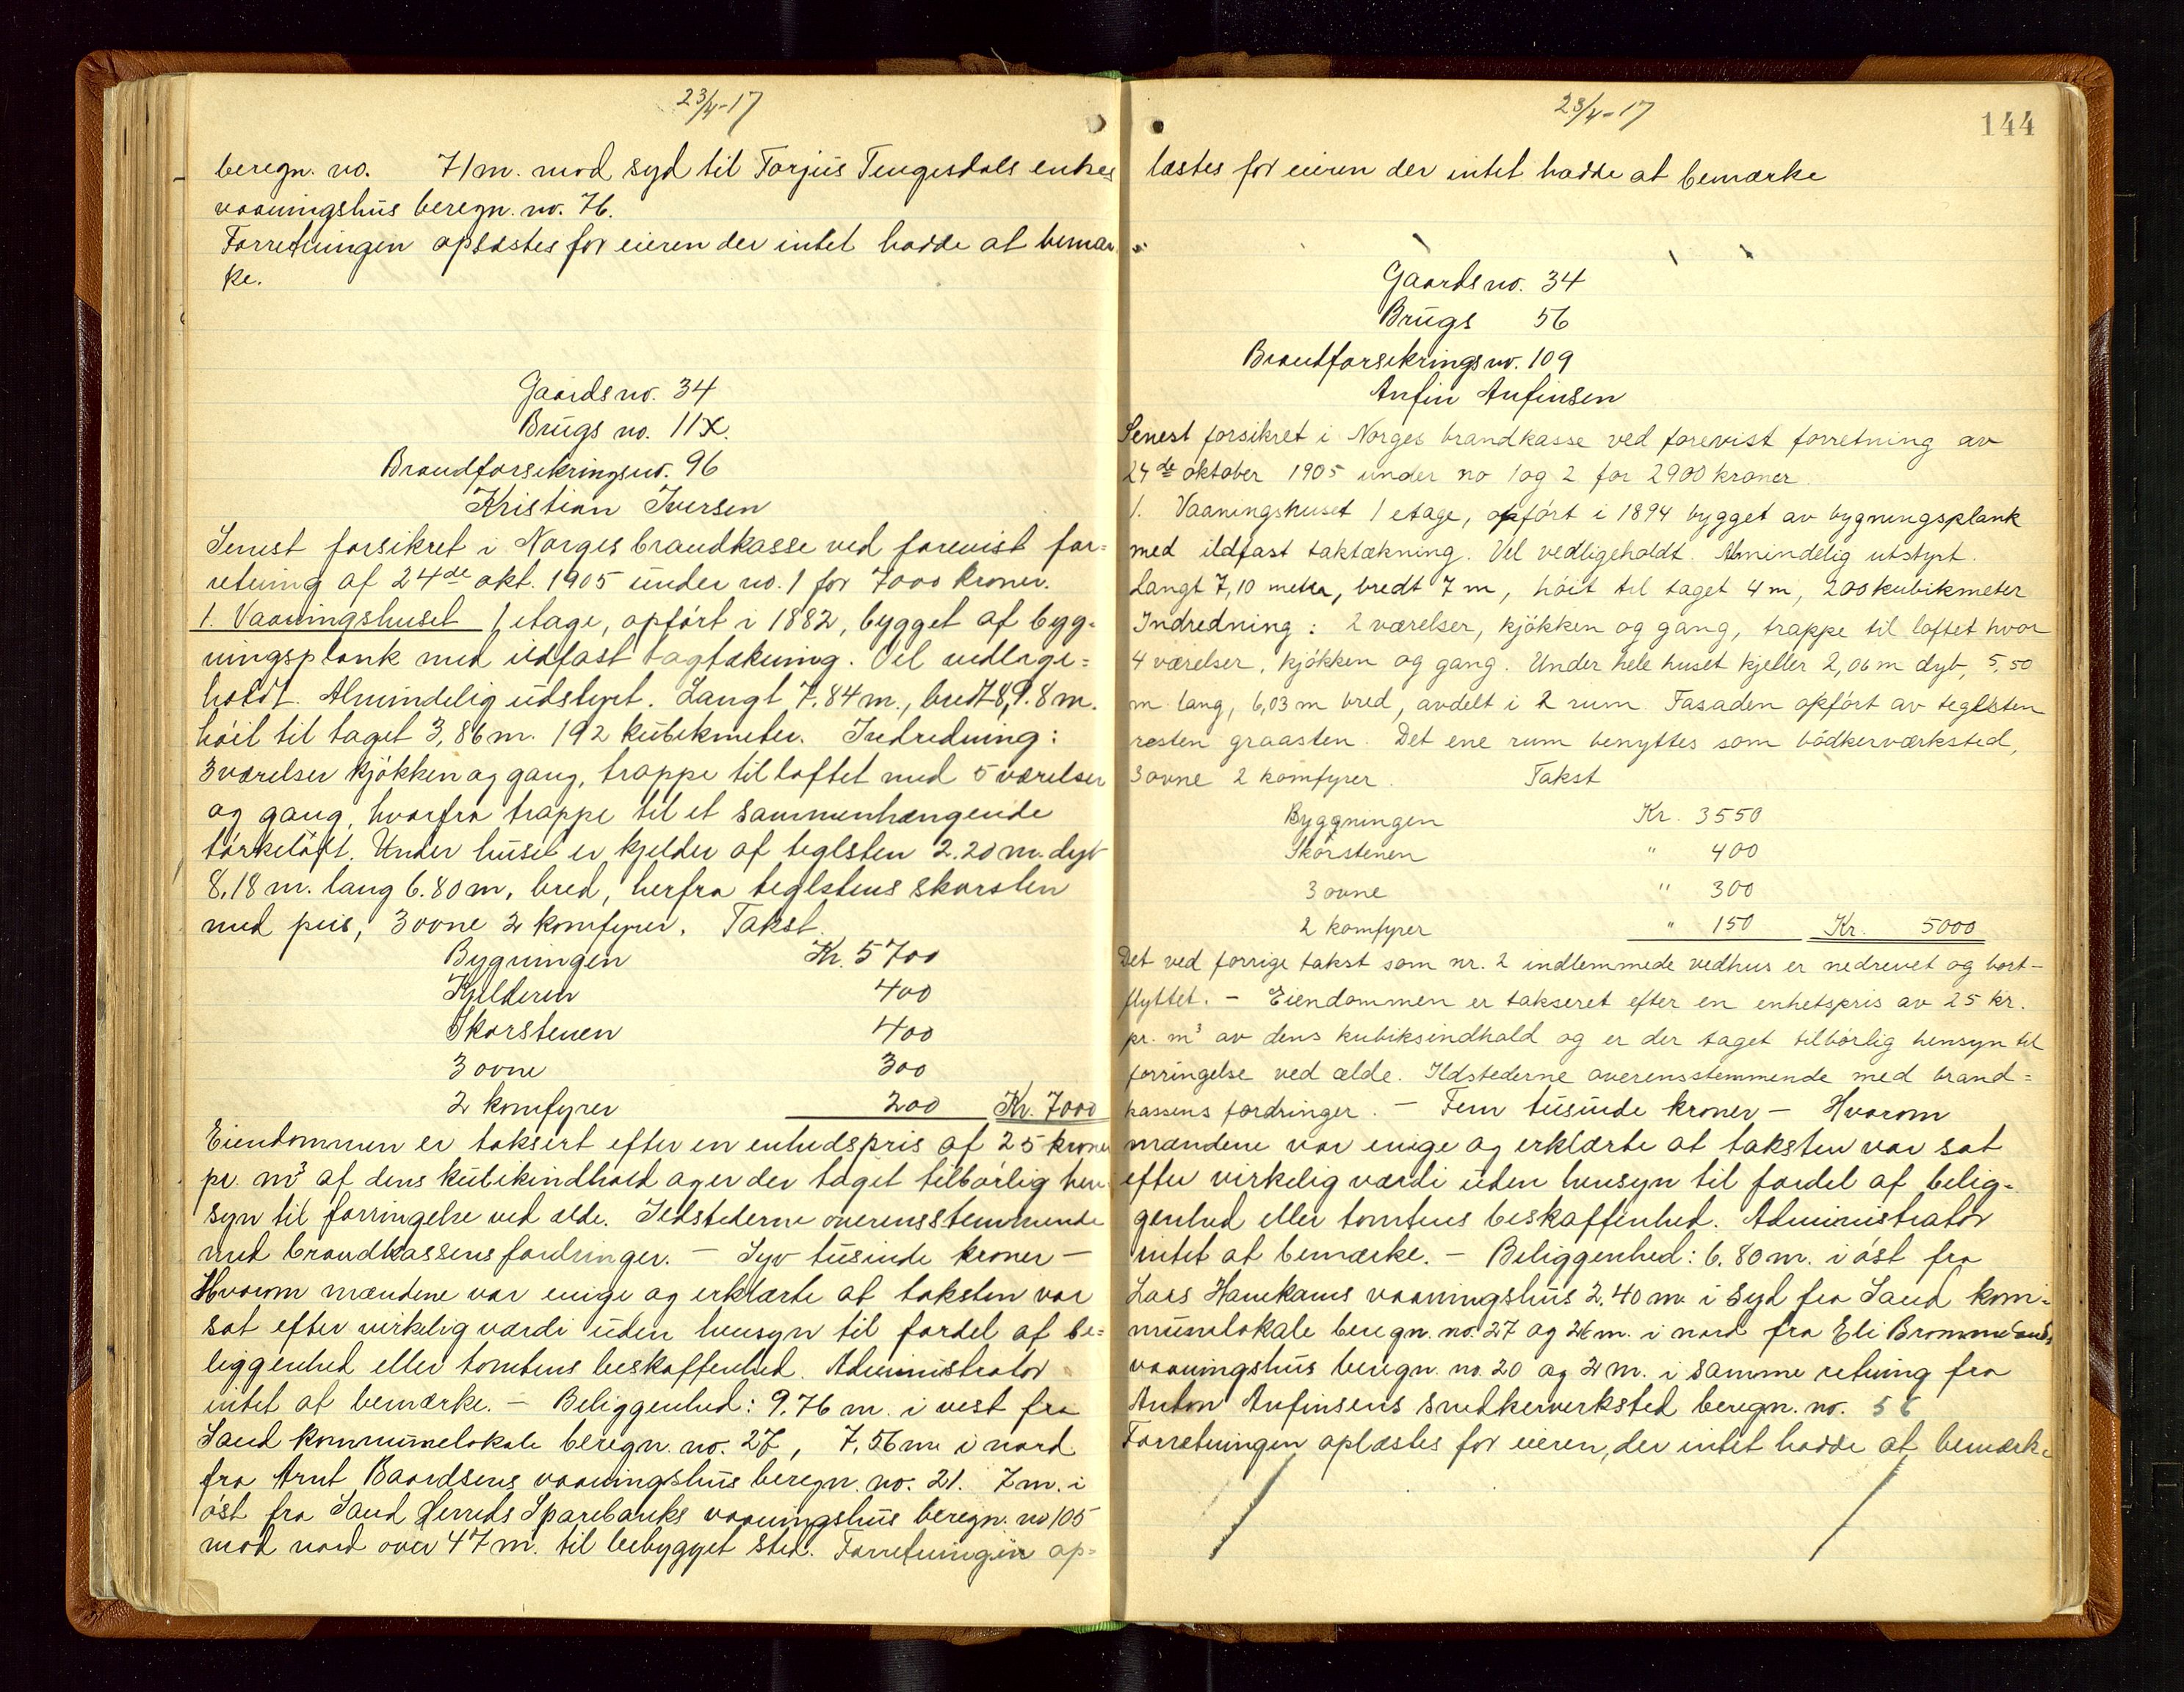 23/4-17
beregn. no. 71m. mod syd til Torjus Tengesdals enkes
vaaningshus beregn. no. 76.
Forretningen oplæstes for eieren der intet hadde at bemær-
ke.
Gaardsno. 34
Brugs no. 11x.
Brandforsikringsno. 96
Kristian Iversen
Senest forsikret i Norges brandkasse ved forevist for-
retning af 24de okt. 1905 under no. 1 for 7000 kroner.
1. Vaaningshuset 1 etage, opført i 1882, bygget af byg-
ningsplank med ildfast tagtækning. Vel vedlige-
holdt. Almindelig udstyret. Langt 7.84 m., bredt 8,9.8 m.
høit til taget 3,86 m. 192 kubikmeter. Indredning:
3 værelser kjøkken og gang, trappe til loftet med 5 værelser
og gang, hvorfra trappe til et sammenhængende
tørkeloft. Under huset er kjelder af teglsten 2.20 m. dyb
8,18 m. lang 6.80 m, bred, herfra teglstens skorsten
med peis, 3 ovne 2 komfyrer. Takst.
Bygningen Kr. 5700
Kjelderen 400
Skorstenen 400
3 ovne 300
2 komfyrer 200 Kr. 7000
Eiendommen er taksert efter en enhedspris af 25 kroner
pr. m³ af dens kubikindhold og er der taget tilbørlig hen-
syn til forringelse ved ælde. Ildstederne overensstemmende
med brandkassens fordringer. – Syv tusinde kroner –
Hvorom mændene var enige og erklærte at taksten var
sat efter virkelig værdi uden hensyn til fordel af be-
liggenhed eller tomtens beskaffenhed. Administrator
intet at bemærke. – Beliggenhed: 9.76 m. i vest fra
Sand kommunelokale beregn. no. 27, 7,56 m i nord
fra Arnt Baardsens vaaningshus beregn. no. 21. 7 m. i
øst fra Sand Herreds Sparebanks vaaningshus beregn. no 105
mod nord over 47 m. til bebygget sted. Forretningen op-
23/4-17
144
læstes for eieren der intet hadde at bemærke
Gaardsno. 34
Brugs 56
Brandforsikringsno. 109
Anfin Anfinsen
Senest forsikret i Norges brandkasse ved forevist forretning av
24de oktober 1905 under no 1 og 2 for 2900 kroner.
1. Vaaningshuset 1 etage, opført i 1894 bygget av bygningsplank
med ildfast taktækning. Vel vedligeholdt. Almindelig utstyrt.
Langt 7,10 meter, bredt 7 m, høit til taget 4 m, 200 kubikmeter
Indredning: 2 værelser, kjøkken og gang, trappe til loftet hvor
4 værelser, kjøkken og gang. Under hele huset kjeller 2,06 m dyb, 5,50
m lang, 6,03 m bred, avdelt i 2 rum. Fasaden opført av teglsten
resten graasten. Det ene rum benyttes som bødkerværksted,
3 ovne 2 komfyrer. Takst
Byggningen Kr. 3550
Skorstenen " 400
3 ovne " 300
2 komfyrer " 150 Kr. 5000
Det ved forrige takst som nr. 2 indlemmede vedhus er nedrevet og bort-
flyttet. – Eiendommen er takseret efter en enhetspris av 25 kr.
pr. m³ av dens kubiksindhold og er der taget tilbørlig hensyn til
forringelse ved ælde. Ildstederne overensstemmende med brand-
kassens fordringer. – Fem tusinde kroner – Hvorom
mændene var enige og erklærte at taksten var sat
efter virkelig værdi uden hensyn til fordel af belig-
genhed eller tomtens beskaffenhed. Administrator
intet at bemærke. – Beliggenhed: 6.80 m. i øst fra
Lars Hanekams vaaningshus 2,40 m i syd fra Sand kom-
munelokale beregn. no. 27 og 26 m. i nord fra Eli
vaaningshus beregn. no. 20 og 2 m. i samme retning fra
Anton Anfinsens snedkerverksted beregn. no. 56
Forretningen oplæstes for eieren, der intet hadde at bemærke